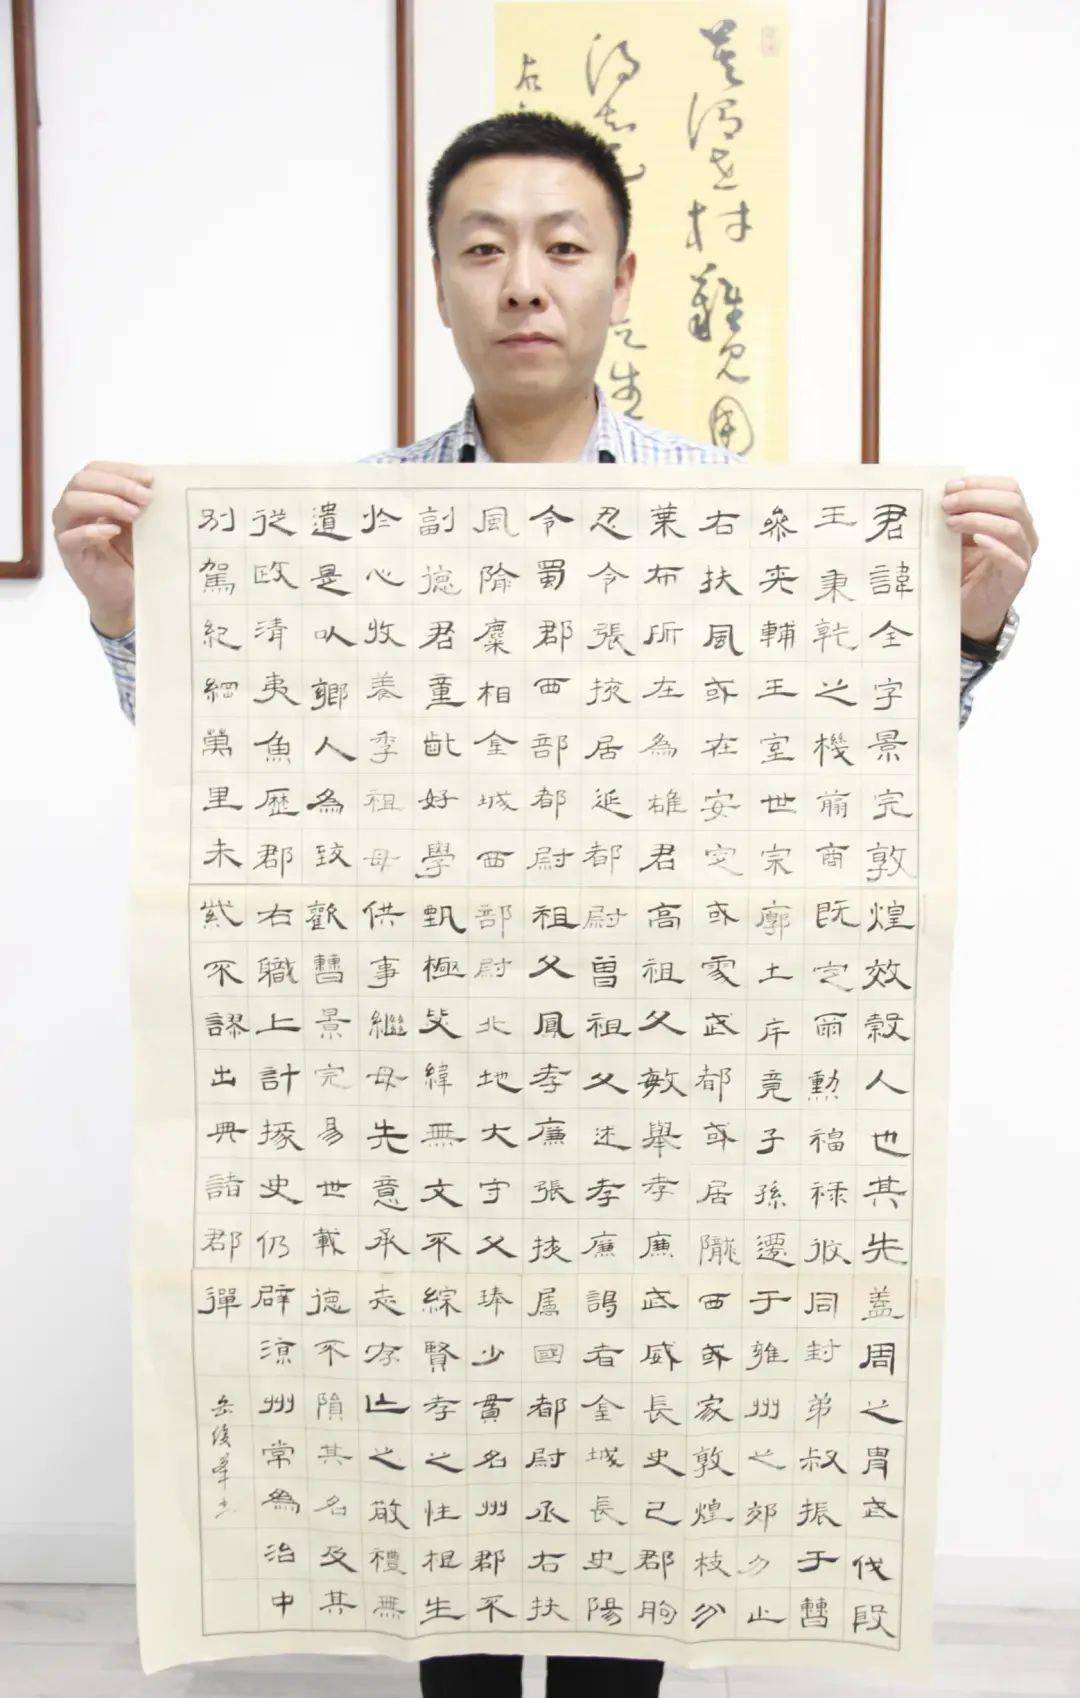 君諱全字景完敦煌效穀人也其先蓋周之胄武伐殷
王秉乾之機翦商既定爾勳福禄攸同封弟叔振于曹
參夾輔王室世宗廓土斥竟子孫遷于雍州之郊分止
右扶風或在安定或處武都或居隴西或家敦煌枝分
葉布所在為雄君高祖父敏舉孝廉武威長史巳郡朐
忍令張掖居延都尉曾祖父述孝廉謁者金城長史陽
令蜀郡西部都尉祖父鳳孝廉張掖屬國都尉丞右扶
風隃糜相金城西部尉北地大守父琫少貫名州郡不
副德君童齔好學甄極毖緯無文不綜賢孝之性根生
於心收養季祖母供事繼母先意承志存亡之敬禮無
遺是以鄉人為致歡曹景完易世載德不隕其名及其
從政清夷魚歷郡右職上計掾史仍辟涼州常為治中
別駕紀綱萬里未紫不謬出典諸郡彈
材難見用